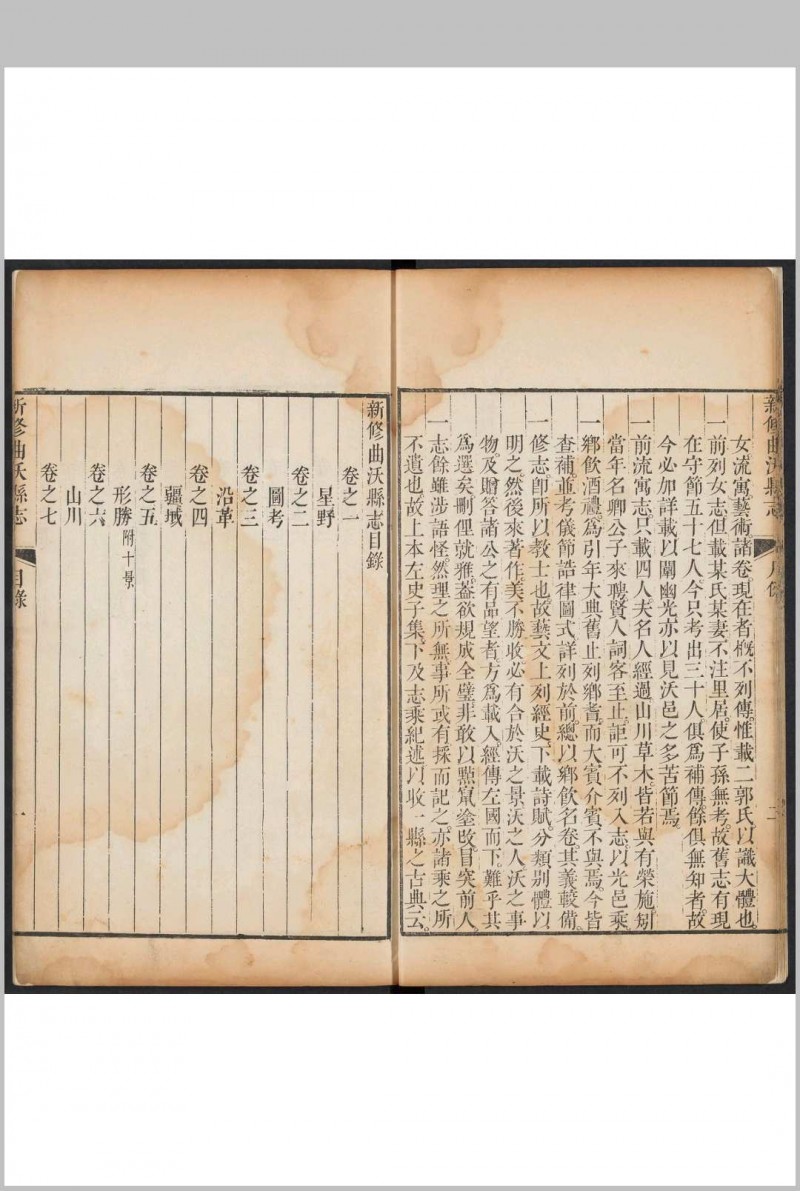 新修曲沃縣志
凡例
二
女流寓藝術諸卷現在者槪不列傳惟載二郭氏以識大體也
一前列女志但載某氏某妻不注里居使子孫無考故舊志有現
在守節五十七人今只考出三十人俱爲補傳餘俱無知者故
今必加詳載以闡幽光亦以見沃邑之多苦節焉
一前流寓志只載四人夫名人經過山川草木皆若與有榮施矧
當年名卿公子來聘賢人詞客至止詎可不列入志以光邑乘
一鄉飲酒禮爲引年大典舊止列鄉耆而大賓介賓不與焉今皆
查補並考儀節誥律圖式詳列於前總以鄉飲名卷其義較備
一修志卽所以教士也故藝文上列經史下載詩賦分類別體以
明之然後來著作美不勝收必有合於沃之景沃之人沃之事
物及贈答諸公之有品望者方爲載入經傳左國而下難乎其
爲選矣刪俚就雅葢欲規成全璧非敢以㸃竄塗改冒突前人
一志餘雖涉語怪然理之所無事所或有採而記之亦諸乘之所
不遺也故上本左史子集下及志乘紀述以收一縣之古典云
新修曲沃縣志目錄
卷之一
星野
卷之二
圖考
卷之三
沿革
卷之四
疆域
卷之五
形勝附十景
卷之六
山川
卷之七
新修曲沃縣志
目錄
一